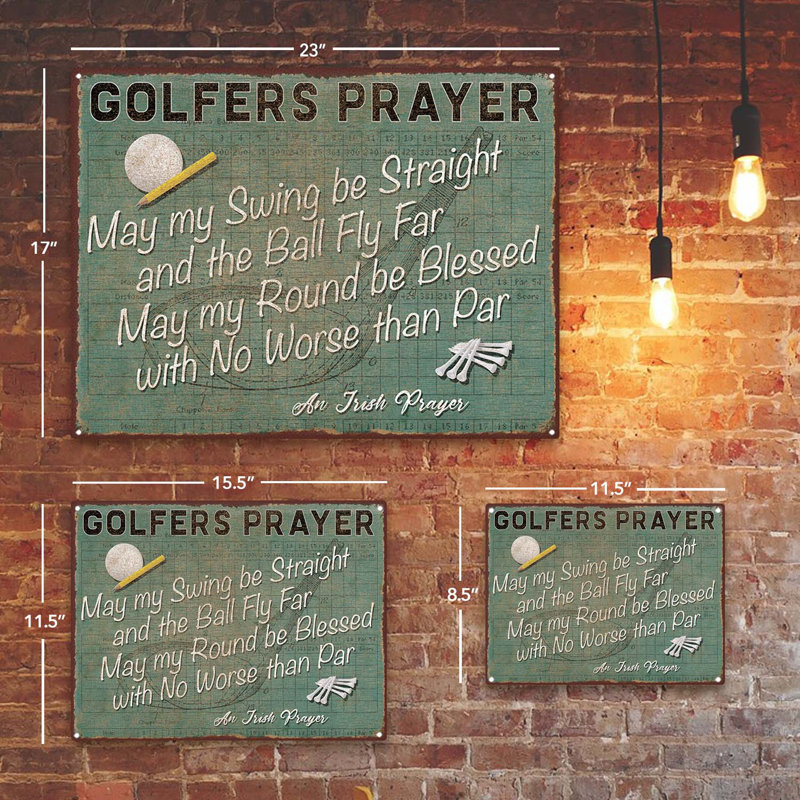 23”
GOLFERS PRAYER
May my Swing be Straight
and the Ball Fly Far
May my Round be Blessed
with No Worse than Par
An Irish Prayer
17”
15.5”
GOLFERS PRAYER
May my Swing be Straight
and the Ball Fly Far
May my Round be Blessed
with No Worse than Par
An Irish Prayer
11.5”
11.5”
GOLFERS PRAYER
May my Swing be Straight
and the Ball Fly Far
May my Round be Blessed
with No Worse than Par
An Irish Prayer
8.5”